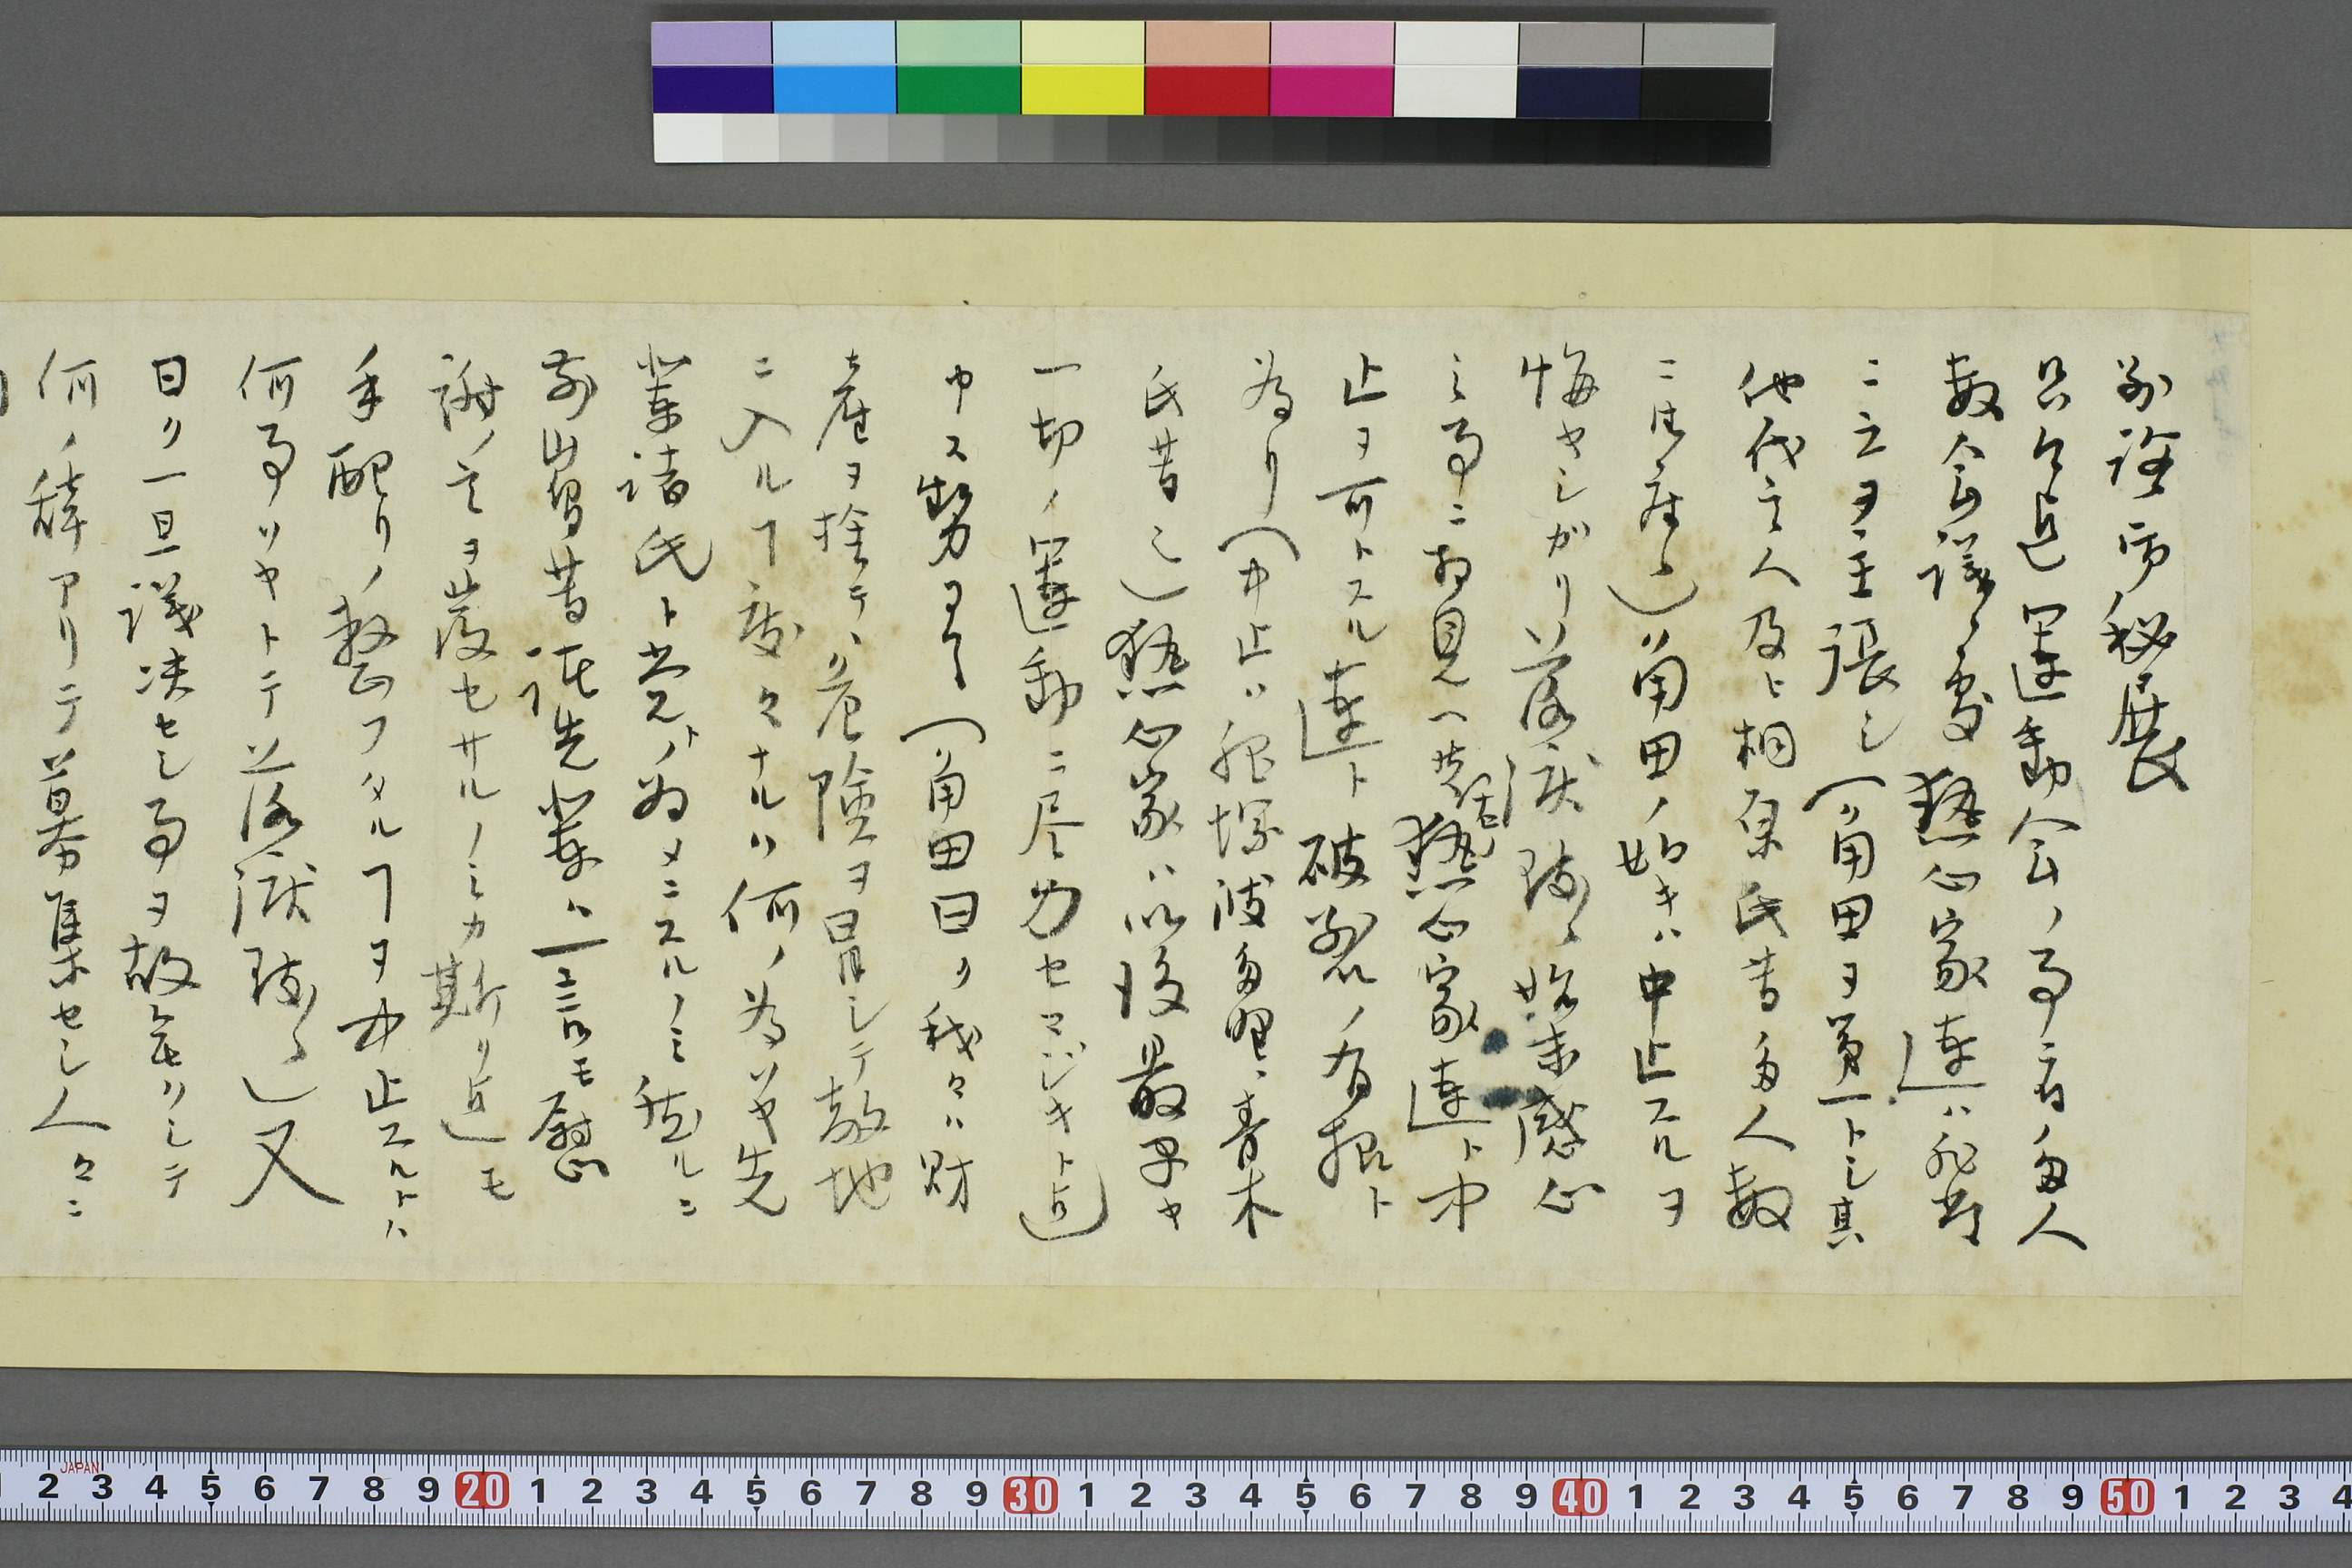 別詮御秘展
只今迄運動会ノ事ニ付ノ多人
数会議ノ處熱心家連ハ非常
ニ立ヲ主張シ(角田ヲ第一トシ其
他代言人及ヒ相原氏等多人数
ニ御座候)角田ノ如キハ中止スルヲ
悔ヤシガリ落涙致シ始末感心
之事ニ相見ヘ共熱心家連ト中
止ヲ可トスル連ト破裂ノ有様ト
為リ(中止ハ肥塚波多野青木
氏等也)熱心家ハ以後最早ヤ
一切ノ運動ニ尽力セマジキト迄
申ス勢ヨリ(角田曰ク我々ハ財
産ヲ捨テ危険ヲ冒シテ敵地
ニ入ルヿ度々ナルハ何ノ為ソヤ先
輩諸氏ト党トノ為メニスルノミ然ルニ
前嶋等諸先輩ハ一言モ慰
謝ノ言ヲ発セサルノミカ斯ク迄モ
手配リノ整フタルヿヲ中止スルトハ
何事ソヤトテ落涙致シ)又
曰ク一旦議決セシ事ヲ故無クシテ
何ノ辞アリテ募集セシ人々ニ